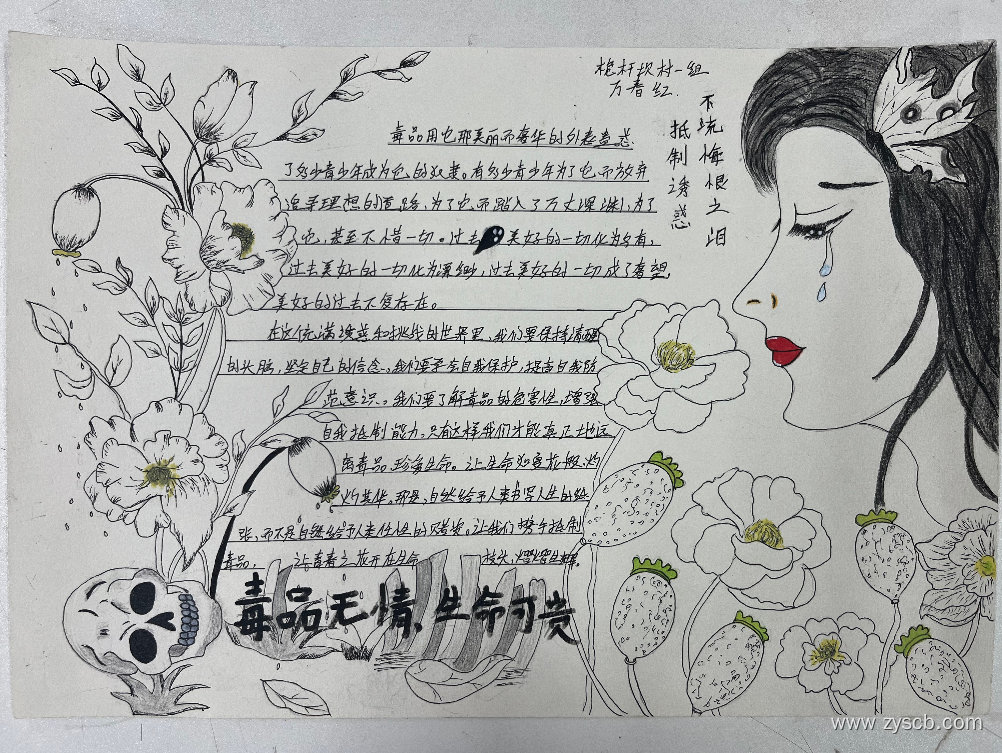 桅杆坎村一组
万春红
不流悔恨之泪
抵制诱惑
毒品用它那美丽而奢华的外表蛊惑
了多少青少年成为它的奴隶。有多少青少年为了它而放弃
追寻理想的道路,为了它而踏入了万丈深渊,为了
它,甚至不惜一切。过去美好的一切化为乌有,
过去美好的一切化为深渊,过去美好的一切成了奢望,
美好的过去不复存在。
在这充满诱惑和挑战的世界里,我们要保持清醒
的头脑,坚定自己的信念,我们要学会自我保护,提高自我防
范意识。我们要了解毒品的危害性,增强
自我抵制能力,只有这样我们才能真正地远
离毒品,珍爱生命。让生命如夏花般,灼
灼其华。那是,自然给予人类书写人生的纸
张,而不是自然给予人类任性的赌资。让我们携手抵制
毒品, 让青春之花开在生命 枝头,熠熠生辉。
毒品无情,生命可贵
www.zyscb.com